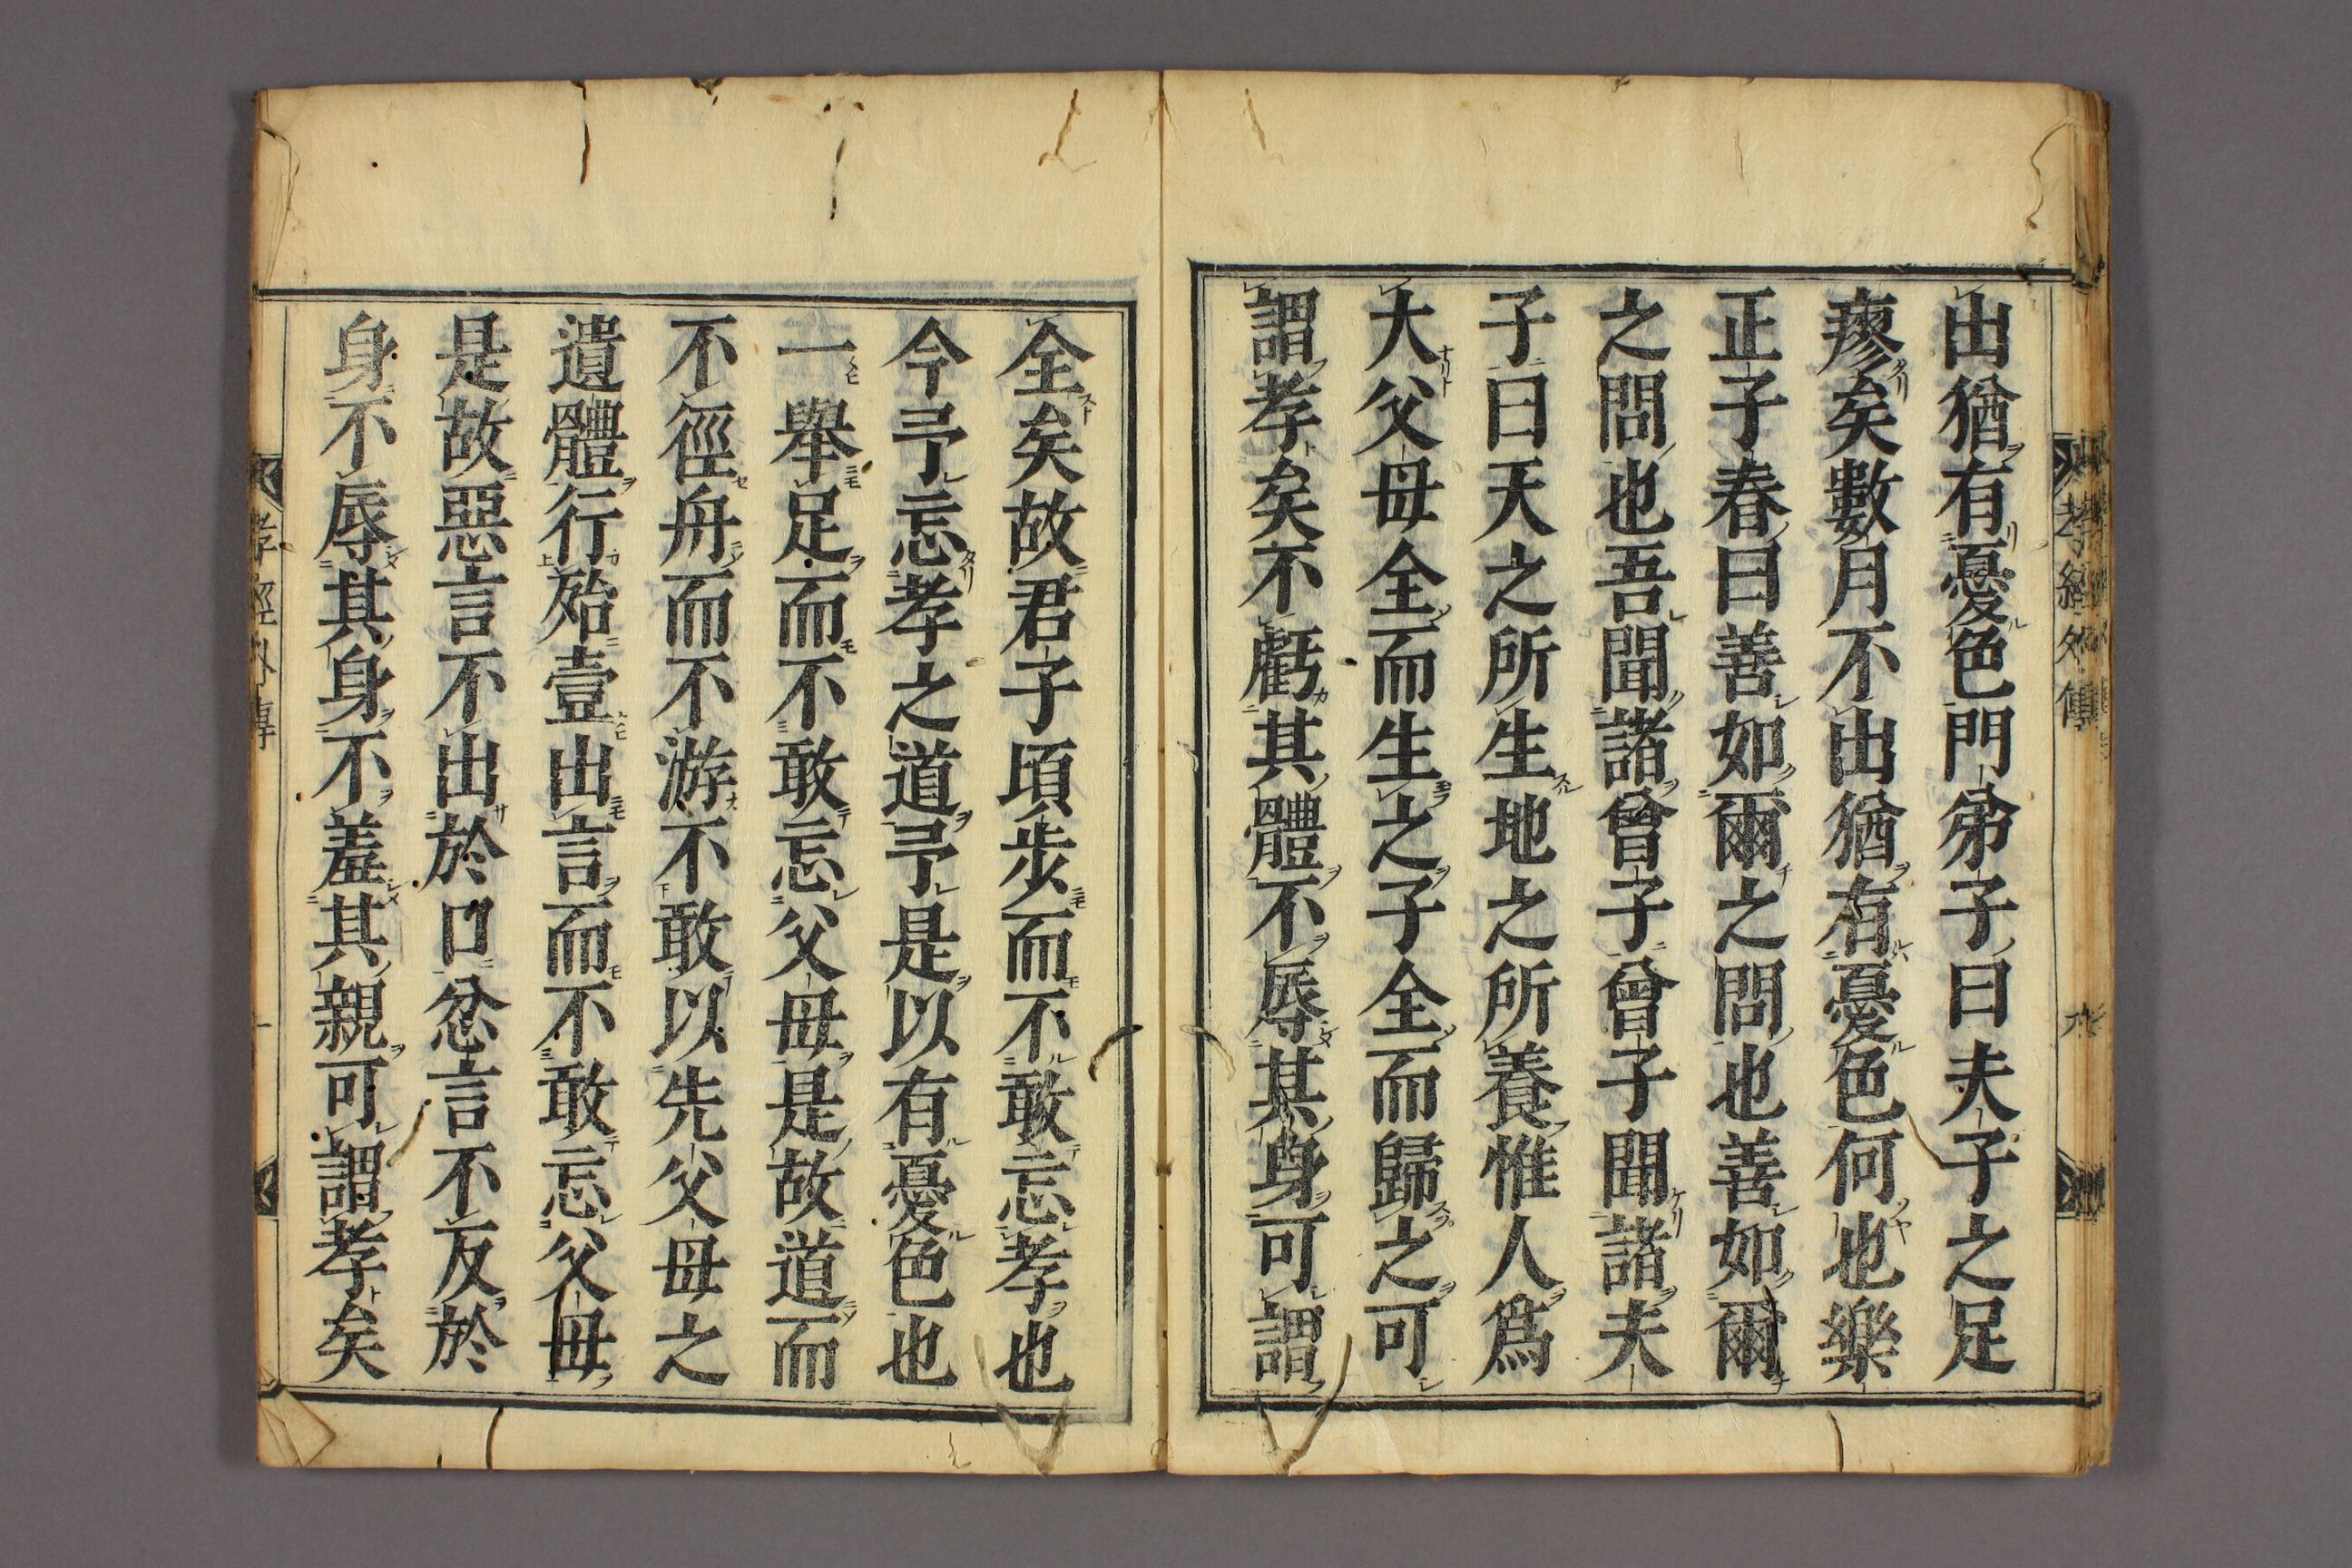 出猶有憂色門弟子曰夫子之足
瘳矣數月不出猶有憂色何也樂
正子春曰善如爾之問也善如爾
之問也吾聞諸曾子曾子聞諸夫
子曰天之所生地之所養惟人爲
大父母全而生之子全而歸之可
謂孝矣不虧其體不辱其身可謂
全矣故君子頃步而不敢忘孝也
今予忘孝之道予是以有憂色也
一舉足而不敢忘父母是故道而
不徑舟而不游不敢以先父母之
遺體行殆壹出言而不敢忘父母
是故惡言不出於口忿言不反於
身不辱其身不羞其親可謂孝矣
孝經外傳
孝經外傳